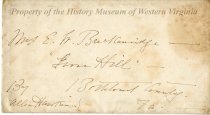 Property of the History Museum of Western Virginia
Mrs E. W. Breckenridge
Grove Hill
By Botetourt County
Va.